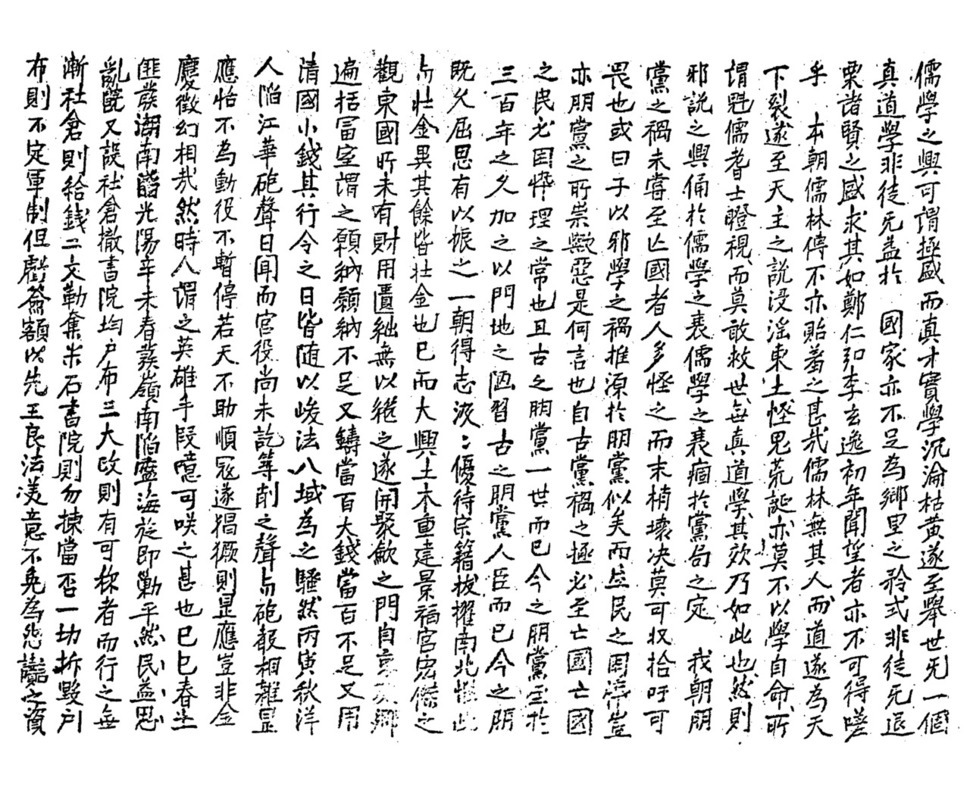 儒學之興可謂極盛而眞才實學沉淪枯黃遂至擧世无一個
眞道學非徒无益於 國家亦不足為鄉里之矜式非徒无退
栗諸賢之盛求其如鄭仁弘李玄逸初年聞望者亦不可得嗟
乎 本朝儒林停不亦貽羞之甚哉儒林無其人而道遂為天
下裂遂至天主之說浸淫東土怪鬼荒誕亦莫不以學自命所
謂魁儒耆士瞪視而莫敢救世無眞道學其效乃如此也然則
邪說之興俑於儒學之衰儒學之衰痼於黨局之定 我朝朋
黨之禍未嘗至亡國者人多怪之而末梢壞决莫可収拾吁可
畏也或曰子以邪學之禍推源於朋黨似矣而生民之困瘁豈
亦朋黨之所崇歟惡是何言也自古黨禍之極必至亡國亡國
之民必困悴理之常也且古之朋黨一世而已今之朋黨至於
三百年之久加之以門地之陋習古之朋黨人臣而已今之朋
既久屈思有以振之一朝得志汲々優待宗籍拔擢南北
与壯金異其餘皆壯金也已而大興土木重建景福宮宏傑之
觀東國所未有財用匱絀無以繼之遂開聚斂之門自京 鄉
遍括富室謂之願納願納不足又鑄當百大錢當百不足又用
清國小錢其行令之日皆随以峻法八域為之騷然丙寅秋洋
人陷江華砲聲日聞而官役尚未訖等削之聲与砲報相雜
應怡不為動役不暫停若天不助順冦遂猖獗則昰應豈非金
慶徵幻相哉然時人謂之英雄手段噫可咲之甚也已巳春土
匪發湖南陷光陽辛未春嶺南陷寧海旋即勦平然民益思
亂旣又設社倉撤書院均戶布三大政則有可称者而行之無
漸社倉則給錢二文勒奪米石書院則勿揀當否一切拆毁戶
布則不定軍制但 額以先王良法美意不免為怨讟之資